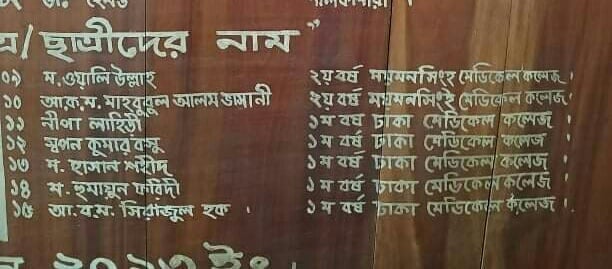 ছাত্রীদের নাম"
০৯ ম.ওয়ালি উল্লাহ ২য় বর্ষ ময়মনসিংহ মেডিকেল কলেজ।
১০ আ.ক.ম. মাহবুবুল আলম ২য় বর্ষ ময়মনসিংহ মেডিকেল কলেজ।
১১ নীপা লাহিড়ী ১ম বর্ষ ঢাকা মেডিকেল কলেজ।
১২ স্বপন কুমার বসু ১ম বর্ষ ঢাকা মেডিকেল কলেজ।
১৩ ম. হাসান শহীদ ১ম বর্ষ ঢাকা মেডিকেল কলেজ।
১৪ ম. হুমায়ুন ফরিদী ১ম বর্ষ ঢাকা মেডিকেল কলেজ।
১৫ আ.ব.ম. সিরাজুল হক । ১ম বর্ষ ঢাকা মেডিকেল কলেজ।